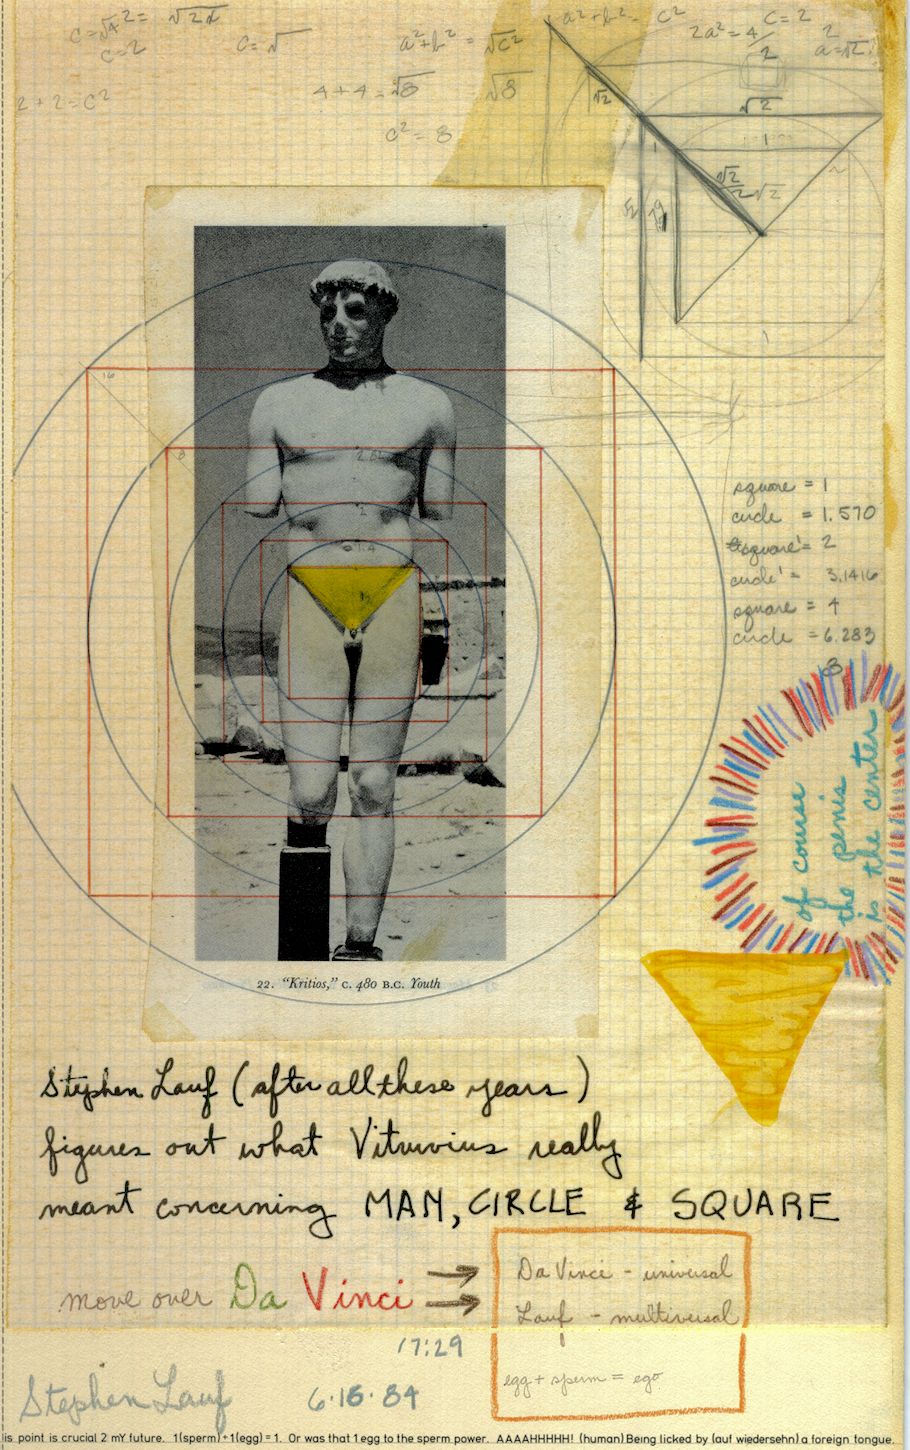 c=√4²= √2x
c=2
c=√
a²+b²= √c²
a²+b²= c²
2a²=4/2
c=2
a=√2
2+2=c²
4+4=√8
√8
c²=8
√2
√2
1
1
√2/2
√2
16
8
2
1.4
1
square = 1
circle = 1.570
square' = 2
circle' = 3.1416
square = 4
circle = 6.283
8
of course
the penis
is the center
22. "Kritios," c. 480 B.C. Youth
Stephen Lauf (after all these years)
figures out what Vitruvius really
meant concerning MAN, CIRCLE & SQUARE
move over Da Vinci
Da Vinci - universal
Lauf - multiversal
egg + sperm = ego
17:29
Stephen Lauf
6·15·84
is point is crucial 2 mY future. 1(sperm)+1(egg)=1. Or was that 1 egg to the sperm power. AAAAHHHHH! (human)Being licked by (auf wiedersehn) a foreign tongue.